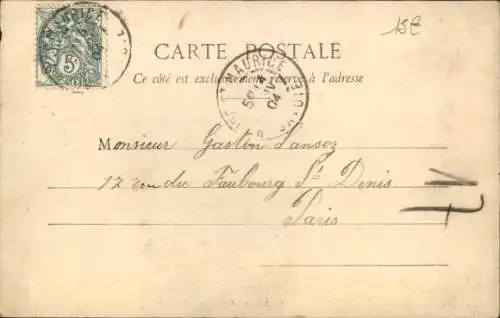 15E
CARTE POSTALE
Ce côté est exclusivement réservé à l'adresse
5c
MAURICE
14
04
Monsieur Gaston Sansoz
12 rue du Faubourg St Denis
Paris